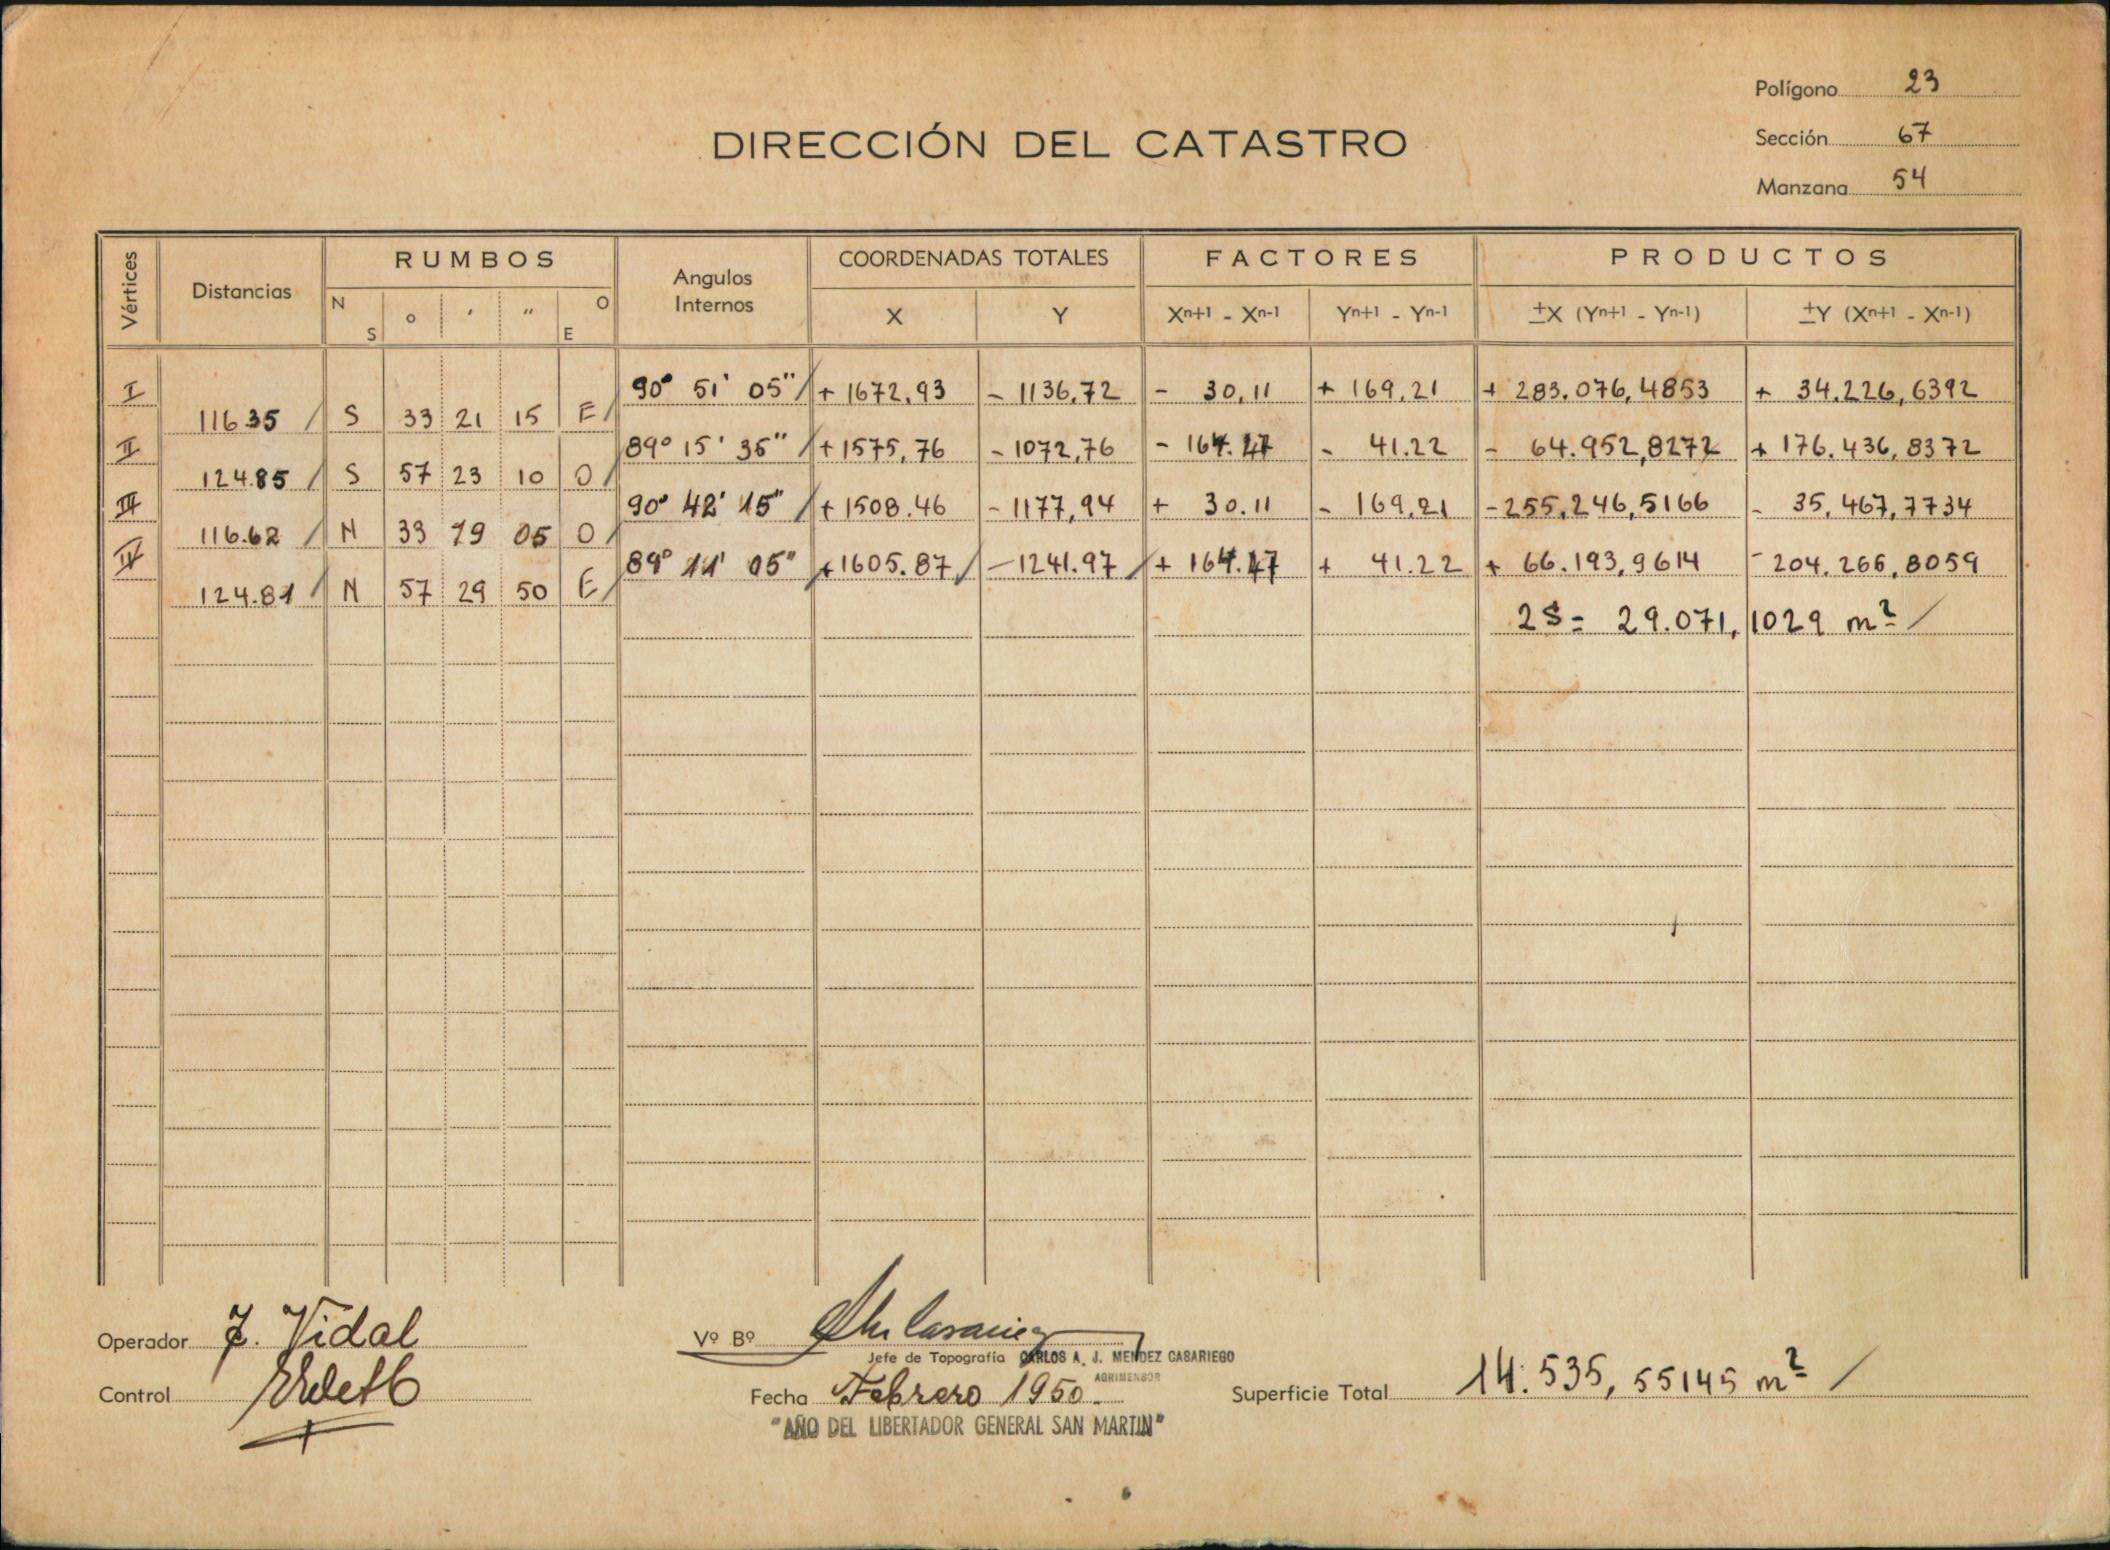 Polígono 23
DIRECCIÓN DEL CATASTRO
Sección 67
Manzana 54
Vértices Distancias RUMBOS Angulos Internos COORDENADAS TOTALES FACTORES PRODUCTOS
N S ° ' " O E X Y Xn+1 - Xn-1 Yn+1 - Yn-1 ±X (Yn+1 - Yn-1) ±Y (Xn+1 - Xn-1)
I 90° 51' 05" + 1672,93 - 1136,72 - 30,11 + 169,21 + 283.076,4853 + 34.226,6392
116.35 S 33 21 15 E
II 89° 15' 35" + 1575,76 - 1072,76 - 164.47 - 41.22 - 64.952,8272 + 176.436,8372
124.85 S 57 23 10 O
III 90° 42' 15" + 1508.46 - 1177,94 + 30.11 - 169,21 - 255,246,5166 - 35,467,7734
116.62 N 33 19 05 O
IV 89° 11' 05" + 1605.87 - 1241.97 + 164.47 + 41.22 + 66.193,9614 - 204.266,8059
124.81 N 57 29 50 E
2S = 29.071,1029 m²
Operador J. Vidal
Vº Bº
Jefe de Topografía CARLOS A. J. MENDEZ CASARIEGO
AGRIMENSOR
Control
Fecha Febrero 1950.
Superficie Total 14.535,55145 m²
"AÑO DEL LIBERTADOR GENERAL SAN MARTIN"